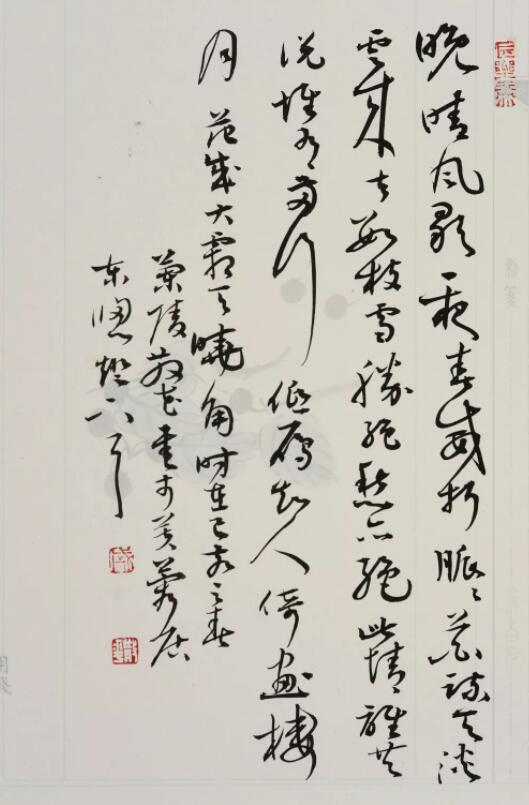 晚晴风歇一夜春威折脉々花疏天淡
云来去数枝雪胜绝愁亦绝此情谁共
说惟有两行低雁知人倚画楼
月 范成大霜天晓角时在己亥之春
兰陵于芙蓉居
东窗灯下